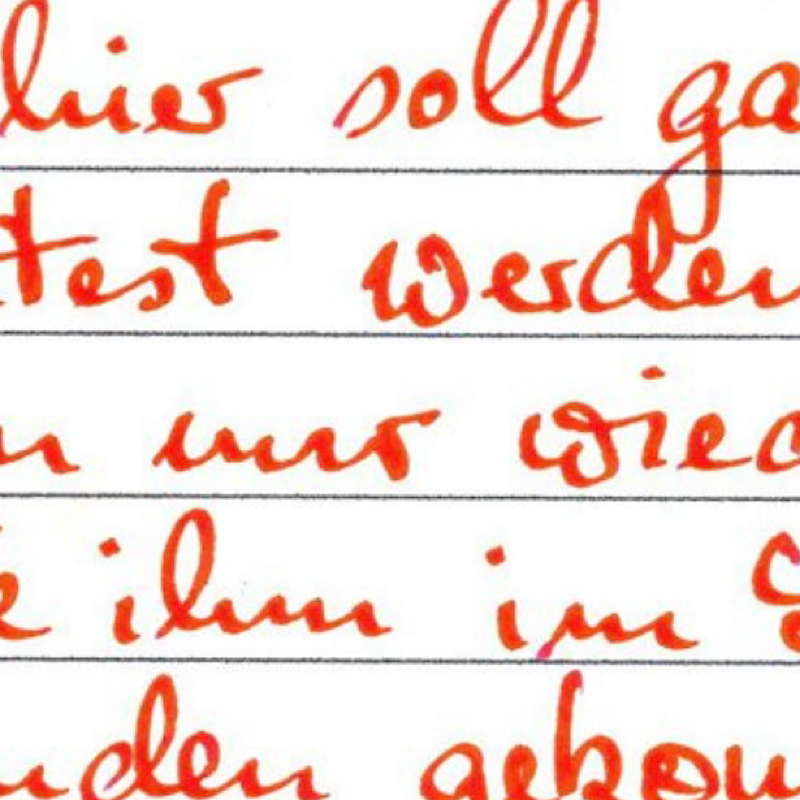 hier soll ga
test werden
n nur wied
e ihm im S
nden gekom